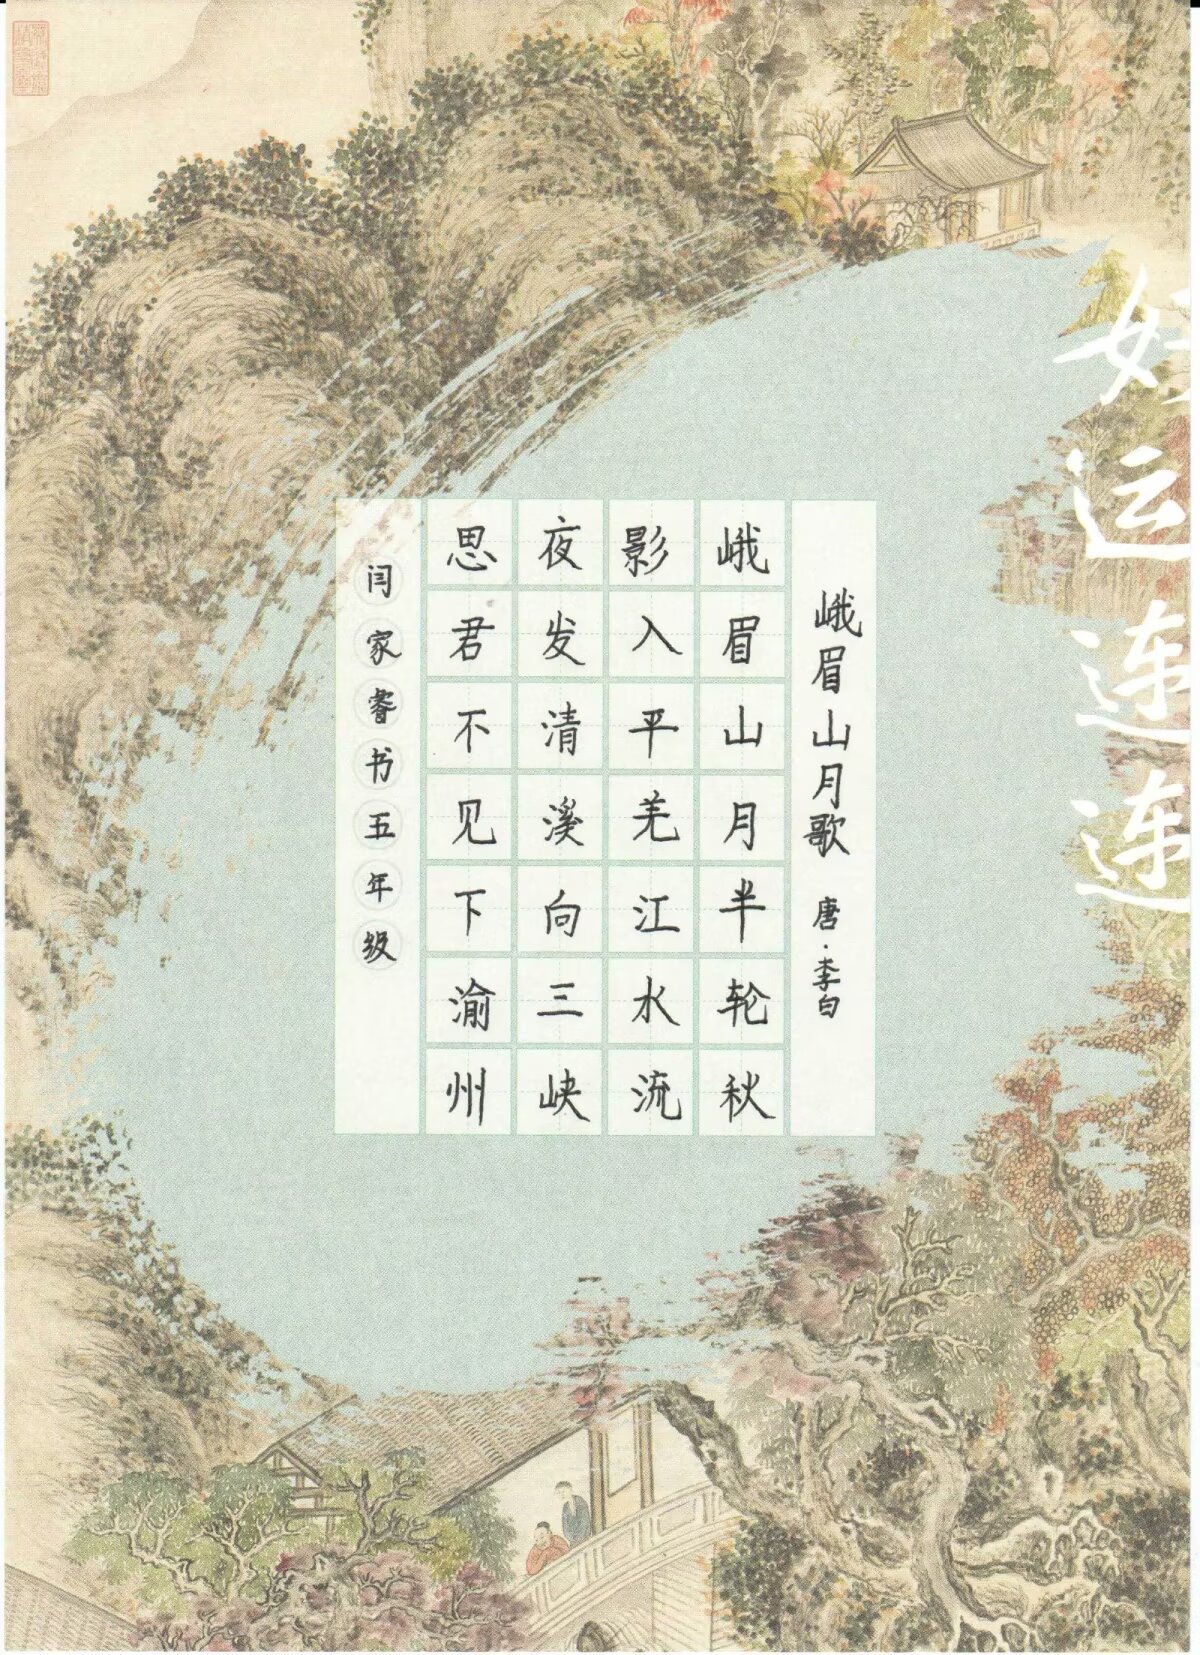 好运连连
峨眉山月歌 唐·李白
峨眉山月半轮秋
影入平羌江水流
夜发清溪向三峡
思君不见下渝州
闫家睿书五年级